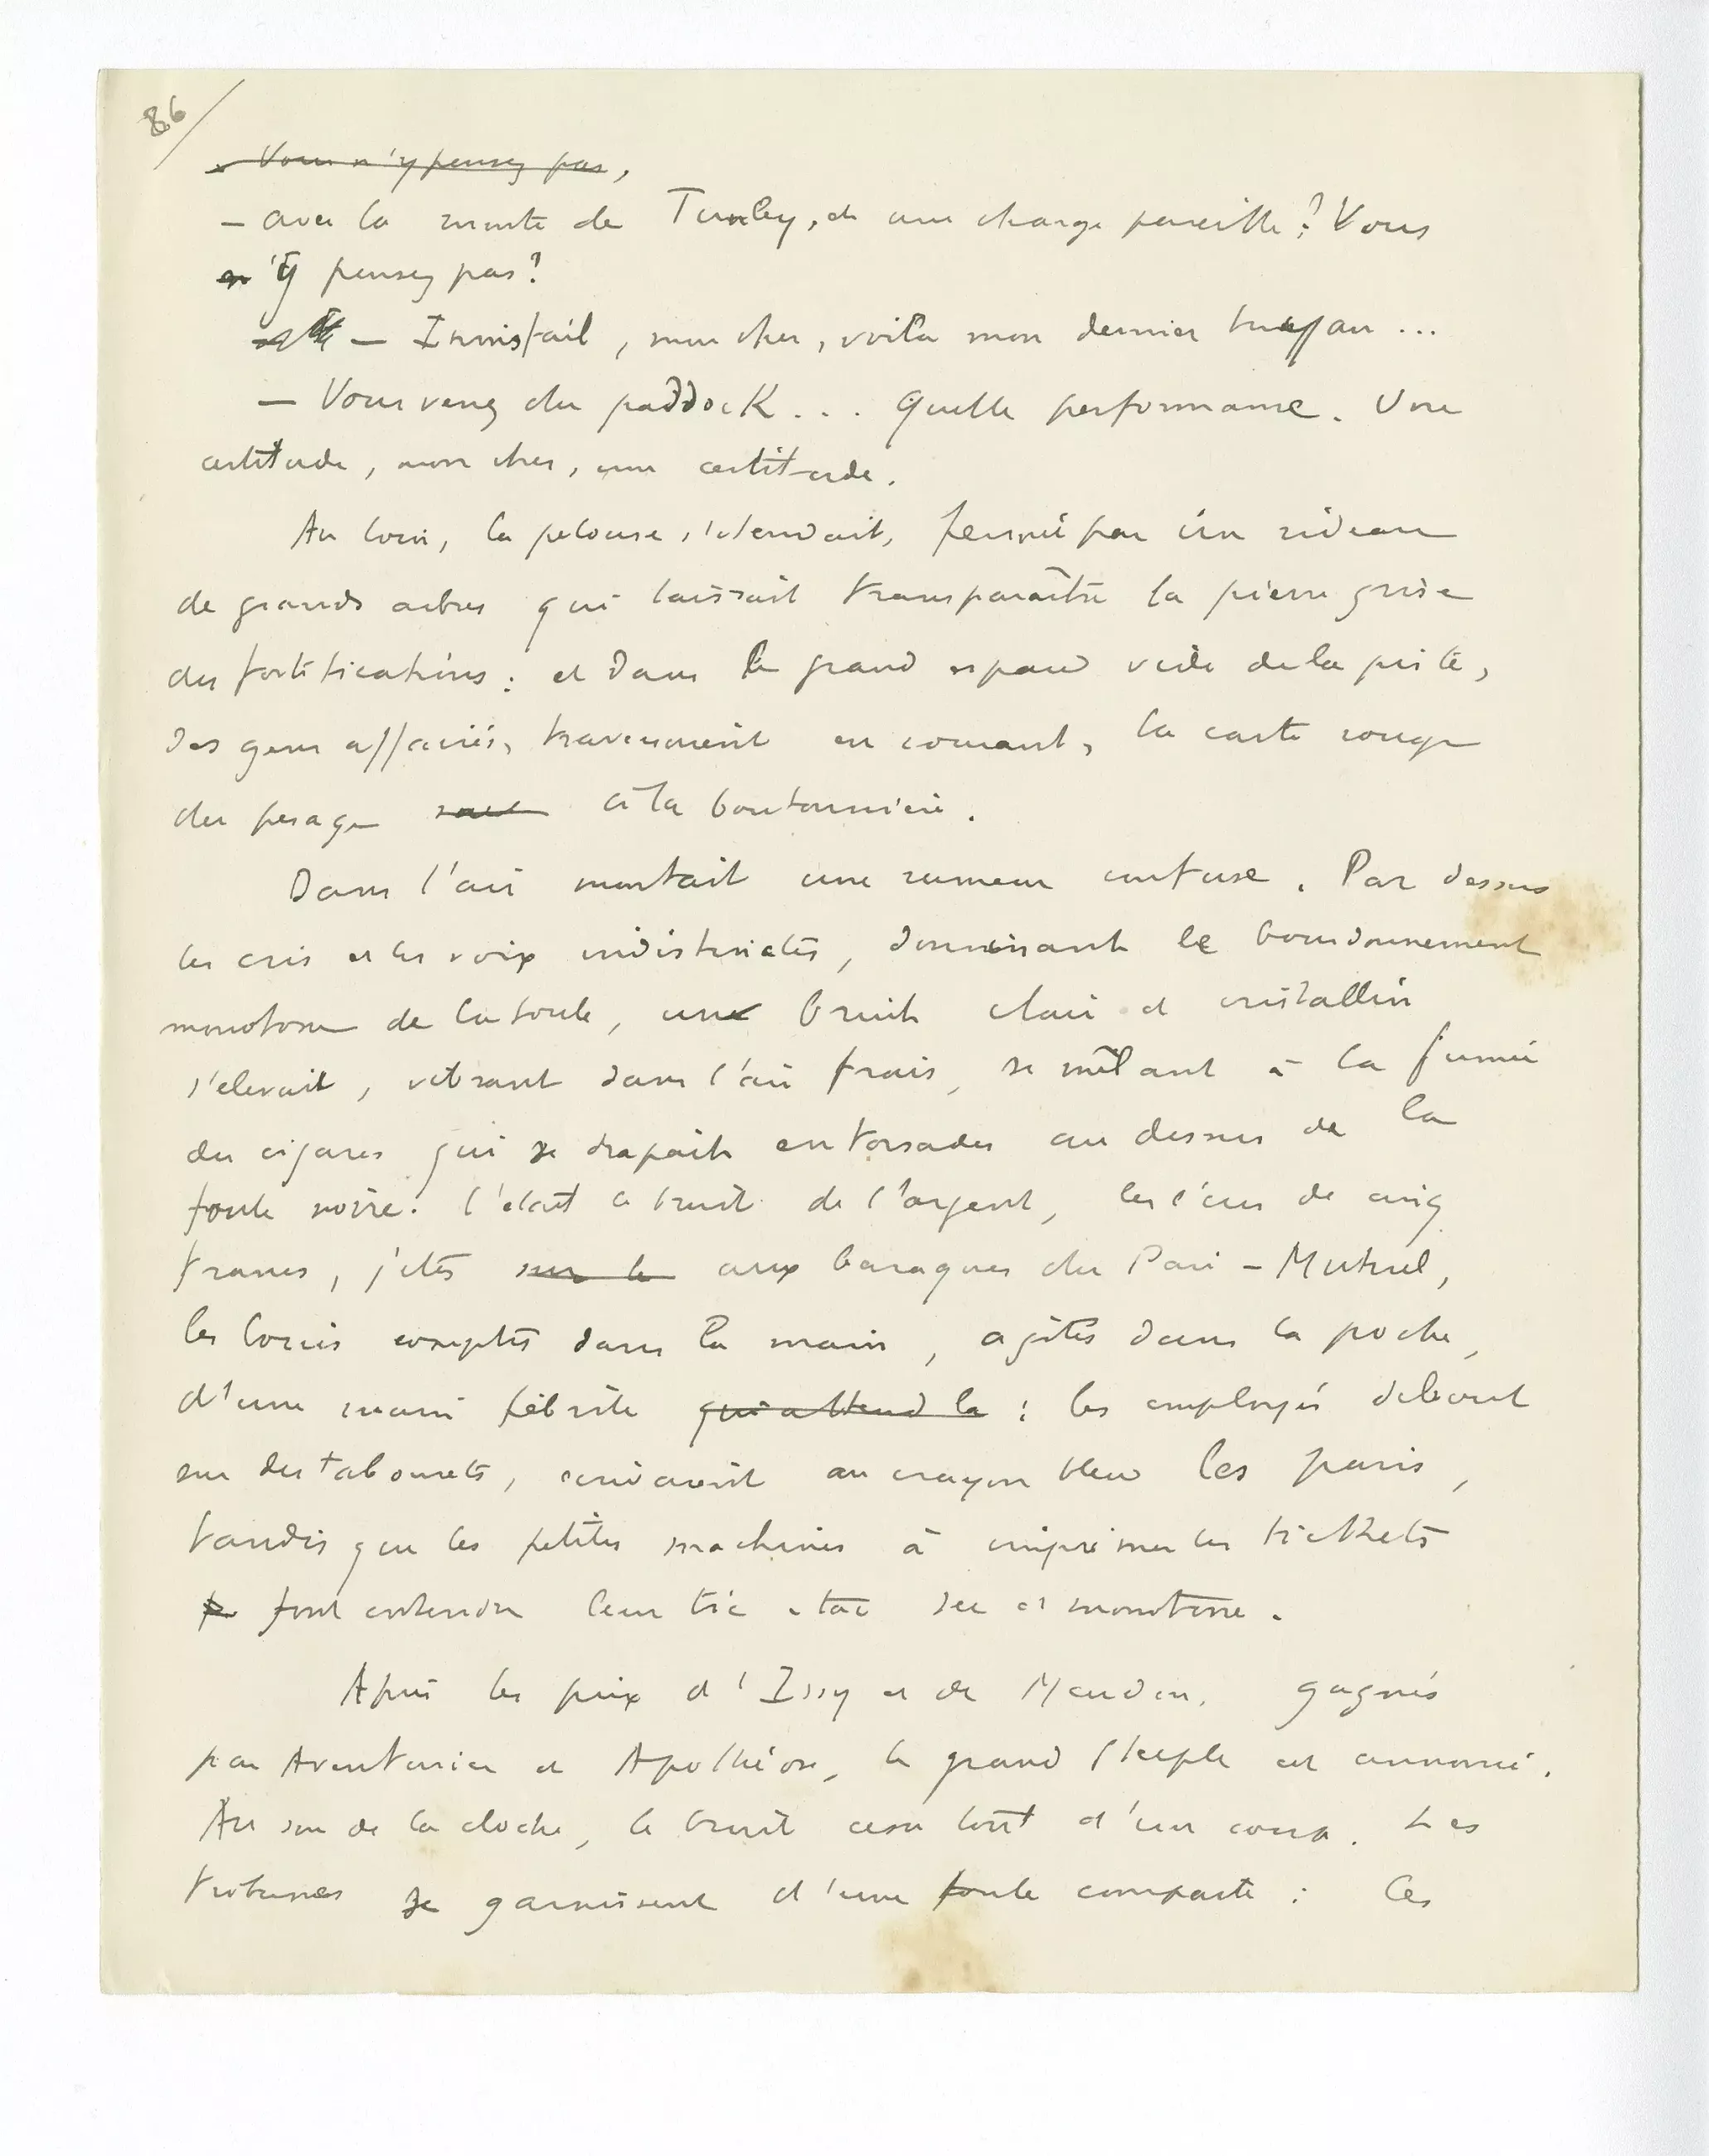 86
- Vous n'y pensez pas,
- avec la monte de Tunley, et une charge pareille? Vous
n'y pensez pas?
- Innisfail, mon cher, voilà mon dernier tuyau...
- Vous venez du paddock... Quelle performance. Une
certitude, mon cher, une certitude.
Au loin, la pelouse s'étendait, fermée par un rideau
de grands arbres qui laissait transparaître la pierre grise
des fortifications : et dans le grand espace vide de la piste,
des gens affairés, traversaient en courant, la carte rouge
du pesage à la boutonnière.
Dans l'air montait une rumeur confuse. Par dessus
les cris et les voix indistinctes, dominant le bourdonnement
monotone de la foule, un bruit clair et cristallin
s'élevait, vibrant dans l'air frais, se mêlant à la fumée
des cigares qui se drapait en torsades au dessus de la
foule noire. C'était le bruit de l'argent, les écus de cinq
francs, jetés sur le aux baraques du Pari-Mutuel,
les louis comptés dans la main, agités dans la poche,
d'une main fébrile qui attend la : les employés debout
sur des tabourets, écrivaient au crayon bleu les paris,
tandis que les petites machines à imprimer les tickets
font entendre leur tic-tac sec et monotone.
Après les prix d'Issy et de Meudon, gagnés
par Aventurier et Apothéose, le grand steeple est annoncé.
Au son de la cloche, le bruit cessa tout d'un coup. Les
tribunes se garnissent d'une foule compacte : les